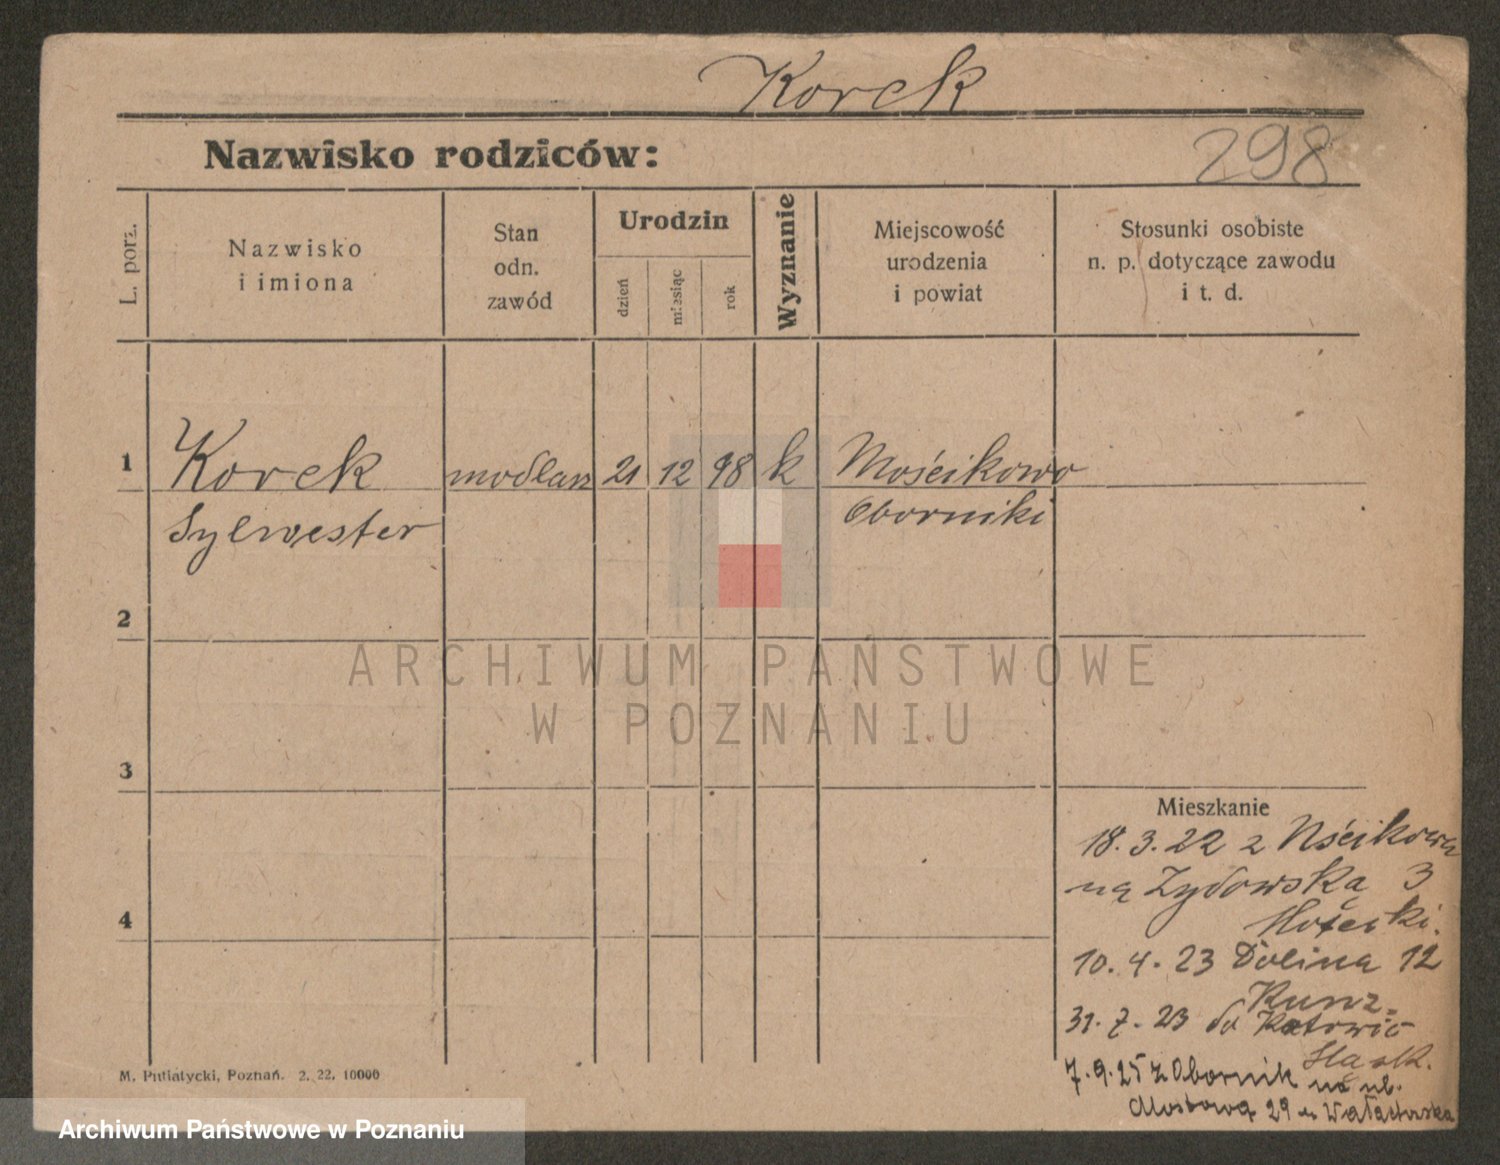 Korek
Nazwisko rodziców:
298
L. porz.
Nazwisko
i imiona
Stan
odn.
zawód
Urodzin
dzień
miesiąc
rok
Wyznanie
Miejscowość
urodzenia
i powiat
Stosunki osobiste
n. p. dotyczące zawodu
i t. d.
1
Korek 21 12 98 k Mościkowo
Sylwester Oborniki
2
ARCHIWUM PAŃSTWOWE
W POZNANIU
3
Mieszkanie
18.3.22 z
na Żydowska 3
4
10.4.23 Dolina 12
31.7.23 do Katowic
7.9.25 z Obornik na ul.
Mostowa 29
M. Putiatycki, Poznań. 2. 22. 10000
Archiwum Państwowe w Poznaniu